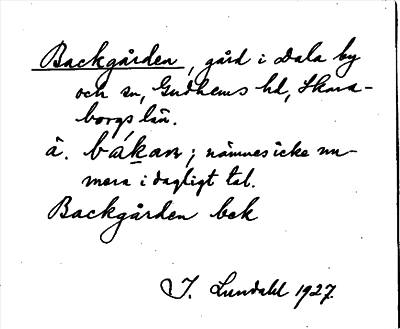 Backgården, gård i Dala by
och sn, Gudhems hd, Skara-
borgs län.
å. bákan; nämnes icke nu-
mera i dagligt tal.
Backgården bek
I. Lundahl 1927.